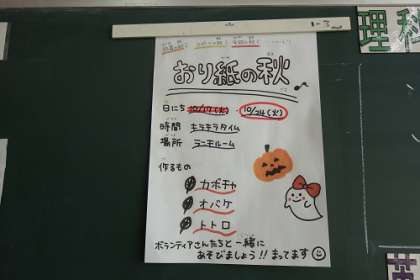 理科
おり紙の秋
日にち 10/17(火)・10/24(火)
時間 キラキラタイム
場所 ランチルーム
作るもの
カボチャ
オバケ
トトロ
ボランティアさんたちと一緒に
あそびましょう!!まってます